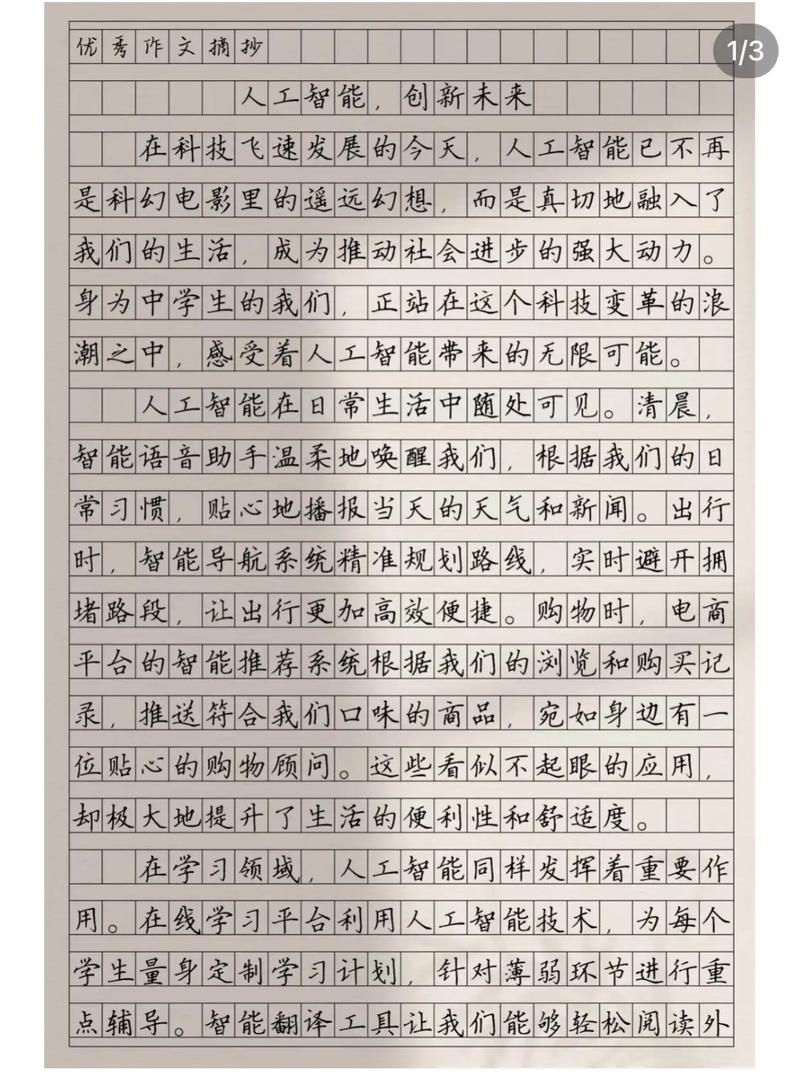 1/3
优秀作文摘抄
人工智能，创新未来
在科技飞速发展的今天，人工智能已不再
是科幻电影里的遥远幻想，而是真切地融入了
我们的生活，成为推动社会进步的强大动力。
身为中学生的我们，正站在这个科技变革的浪
潮之中，感受着人工智能带来的无限可能。
人工智能在日常生活中随处可见。清晨，
智能语音助手温柔地唤醒我们，根据我们的日
常习惯，贴心地播报当天的天气和新闻。出行
时，智能导航系统精准规划路线，实时避开拥
堵路段，让出行更加高效便捷。购物时，电商
平台的智能推荐系统根据我们的浏览和购买记
录，推送符合我们口味的商品，宛如身边有一
位贴心的购物顾问。这些看似不起眼的应用，
却极大地提升了生活的便利性和舒适度。
在学习领域，人工智能同样发挥着重要作
用。在线学习平台利用人工智能技术，为每个
学生量身定制学习计划，针对薄弱环节进行重
点辅导。智能翻译工具让我们能够轻松阅读外